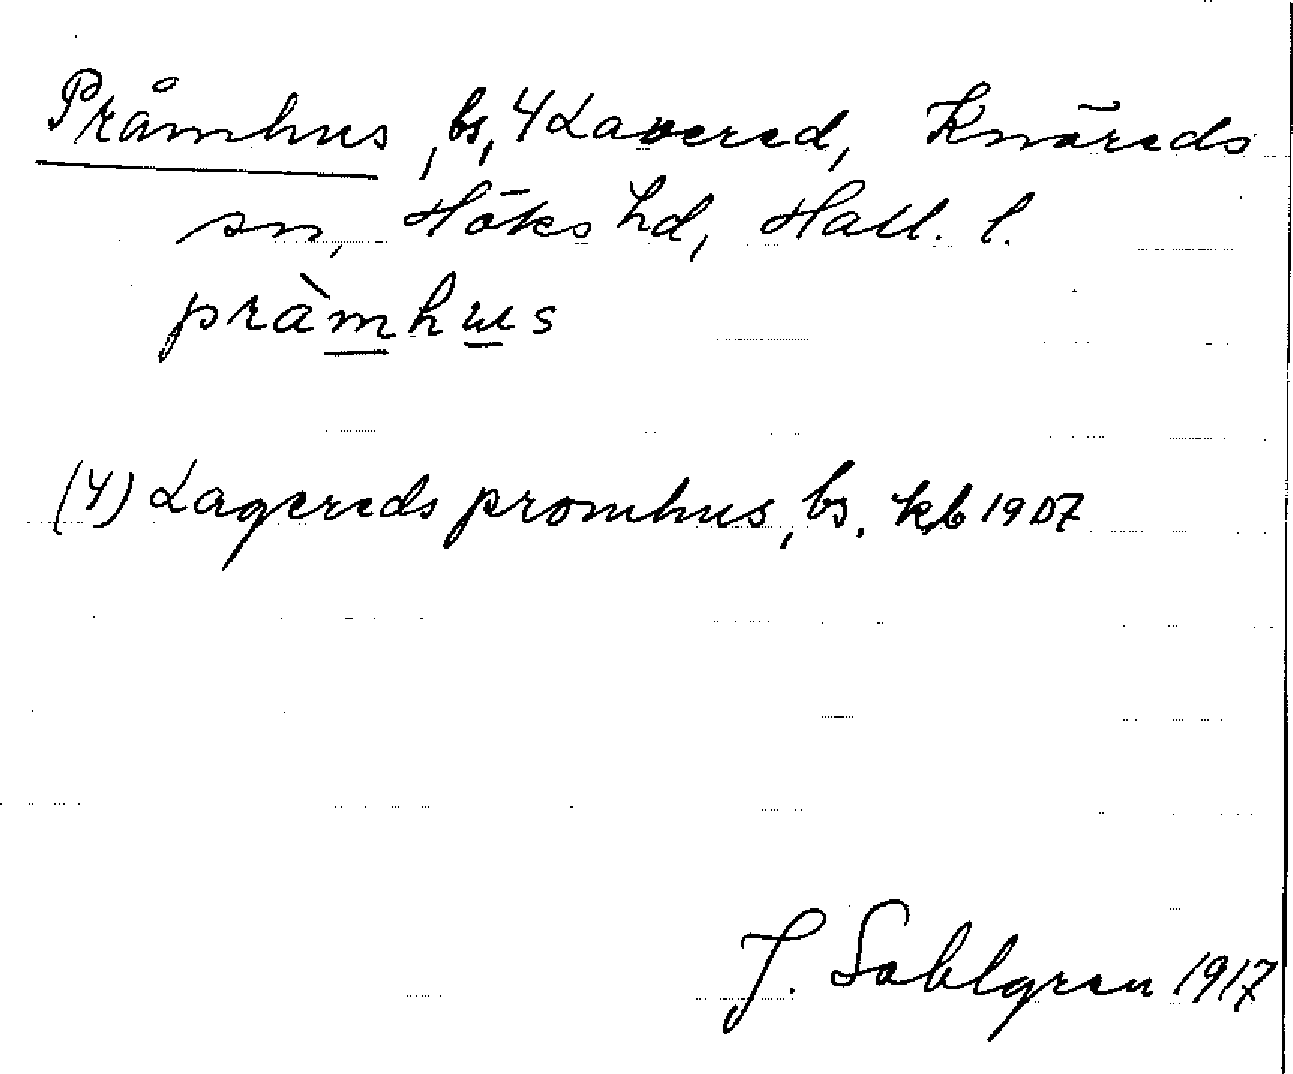 Pråmhus, bs, 4 Lavered, Knäreds
sn, Höks hd, Hall. l.
pràmhus
(4) Lagereds promhus, bs. kb 1907
J. Sahlgren 1917